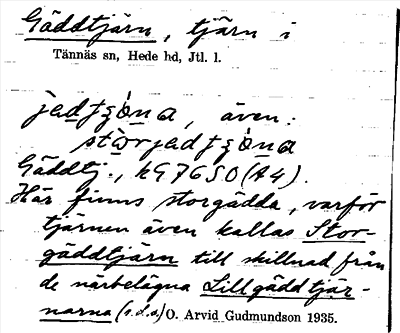 Gäddtjärn, tjärn i
Tännäs sn, Hede hd, Jtl. l.
även:
Gäddtj., kG76SO(A4).
Här finns storgädda, varför
tjärnen även kallas Stor-
gäddtjärn till skillnad från
de närbelägna Lillgäddtjär-
narna (s.d.a) O. Arvid Gudmundson 1935.